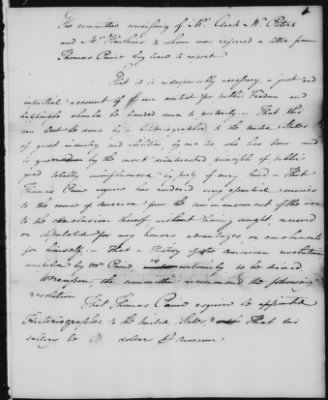 The committee consisting of Mr. Clark Mr. Peters
and Mr. Hawkins to whom was referred a letter from
Thomas Paine beg leave to report
That it is indispensibly necessary, a just and
impartial account of our contest for public Freedom and
happiness should be handed down to posterity - That this
can best be done by a historiographer to the United States
of great industry and abilities, who has been and
is governed by the most disinterested principles of public
good totally uninfluenced by party of every kind - That
Thomas Paine esquire has rendered very essential services
to the cause of America from the commencement of the war
to the conclusion thereof without having sought, received
or stipulated for any honors advantages or emoluments
for himself - That a History of the American revolution
compiled by Mr Paine is certainly to be desired
Whereupon, the committee recommend the following
resolution
That Thomas Paine esquire be appointed
Historiographer to the United States, That his
salary be dollars pr annum